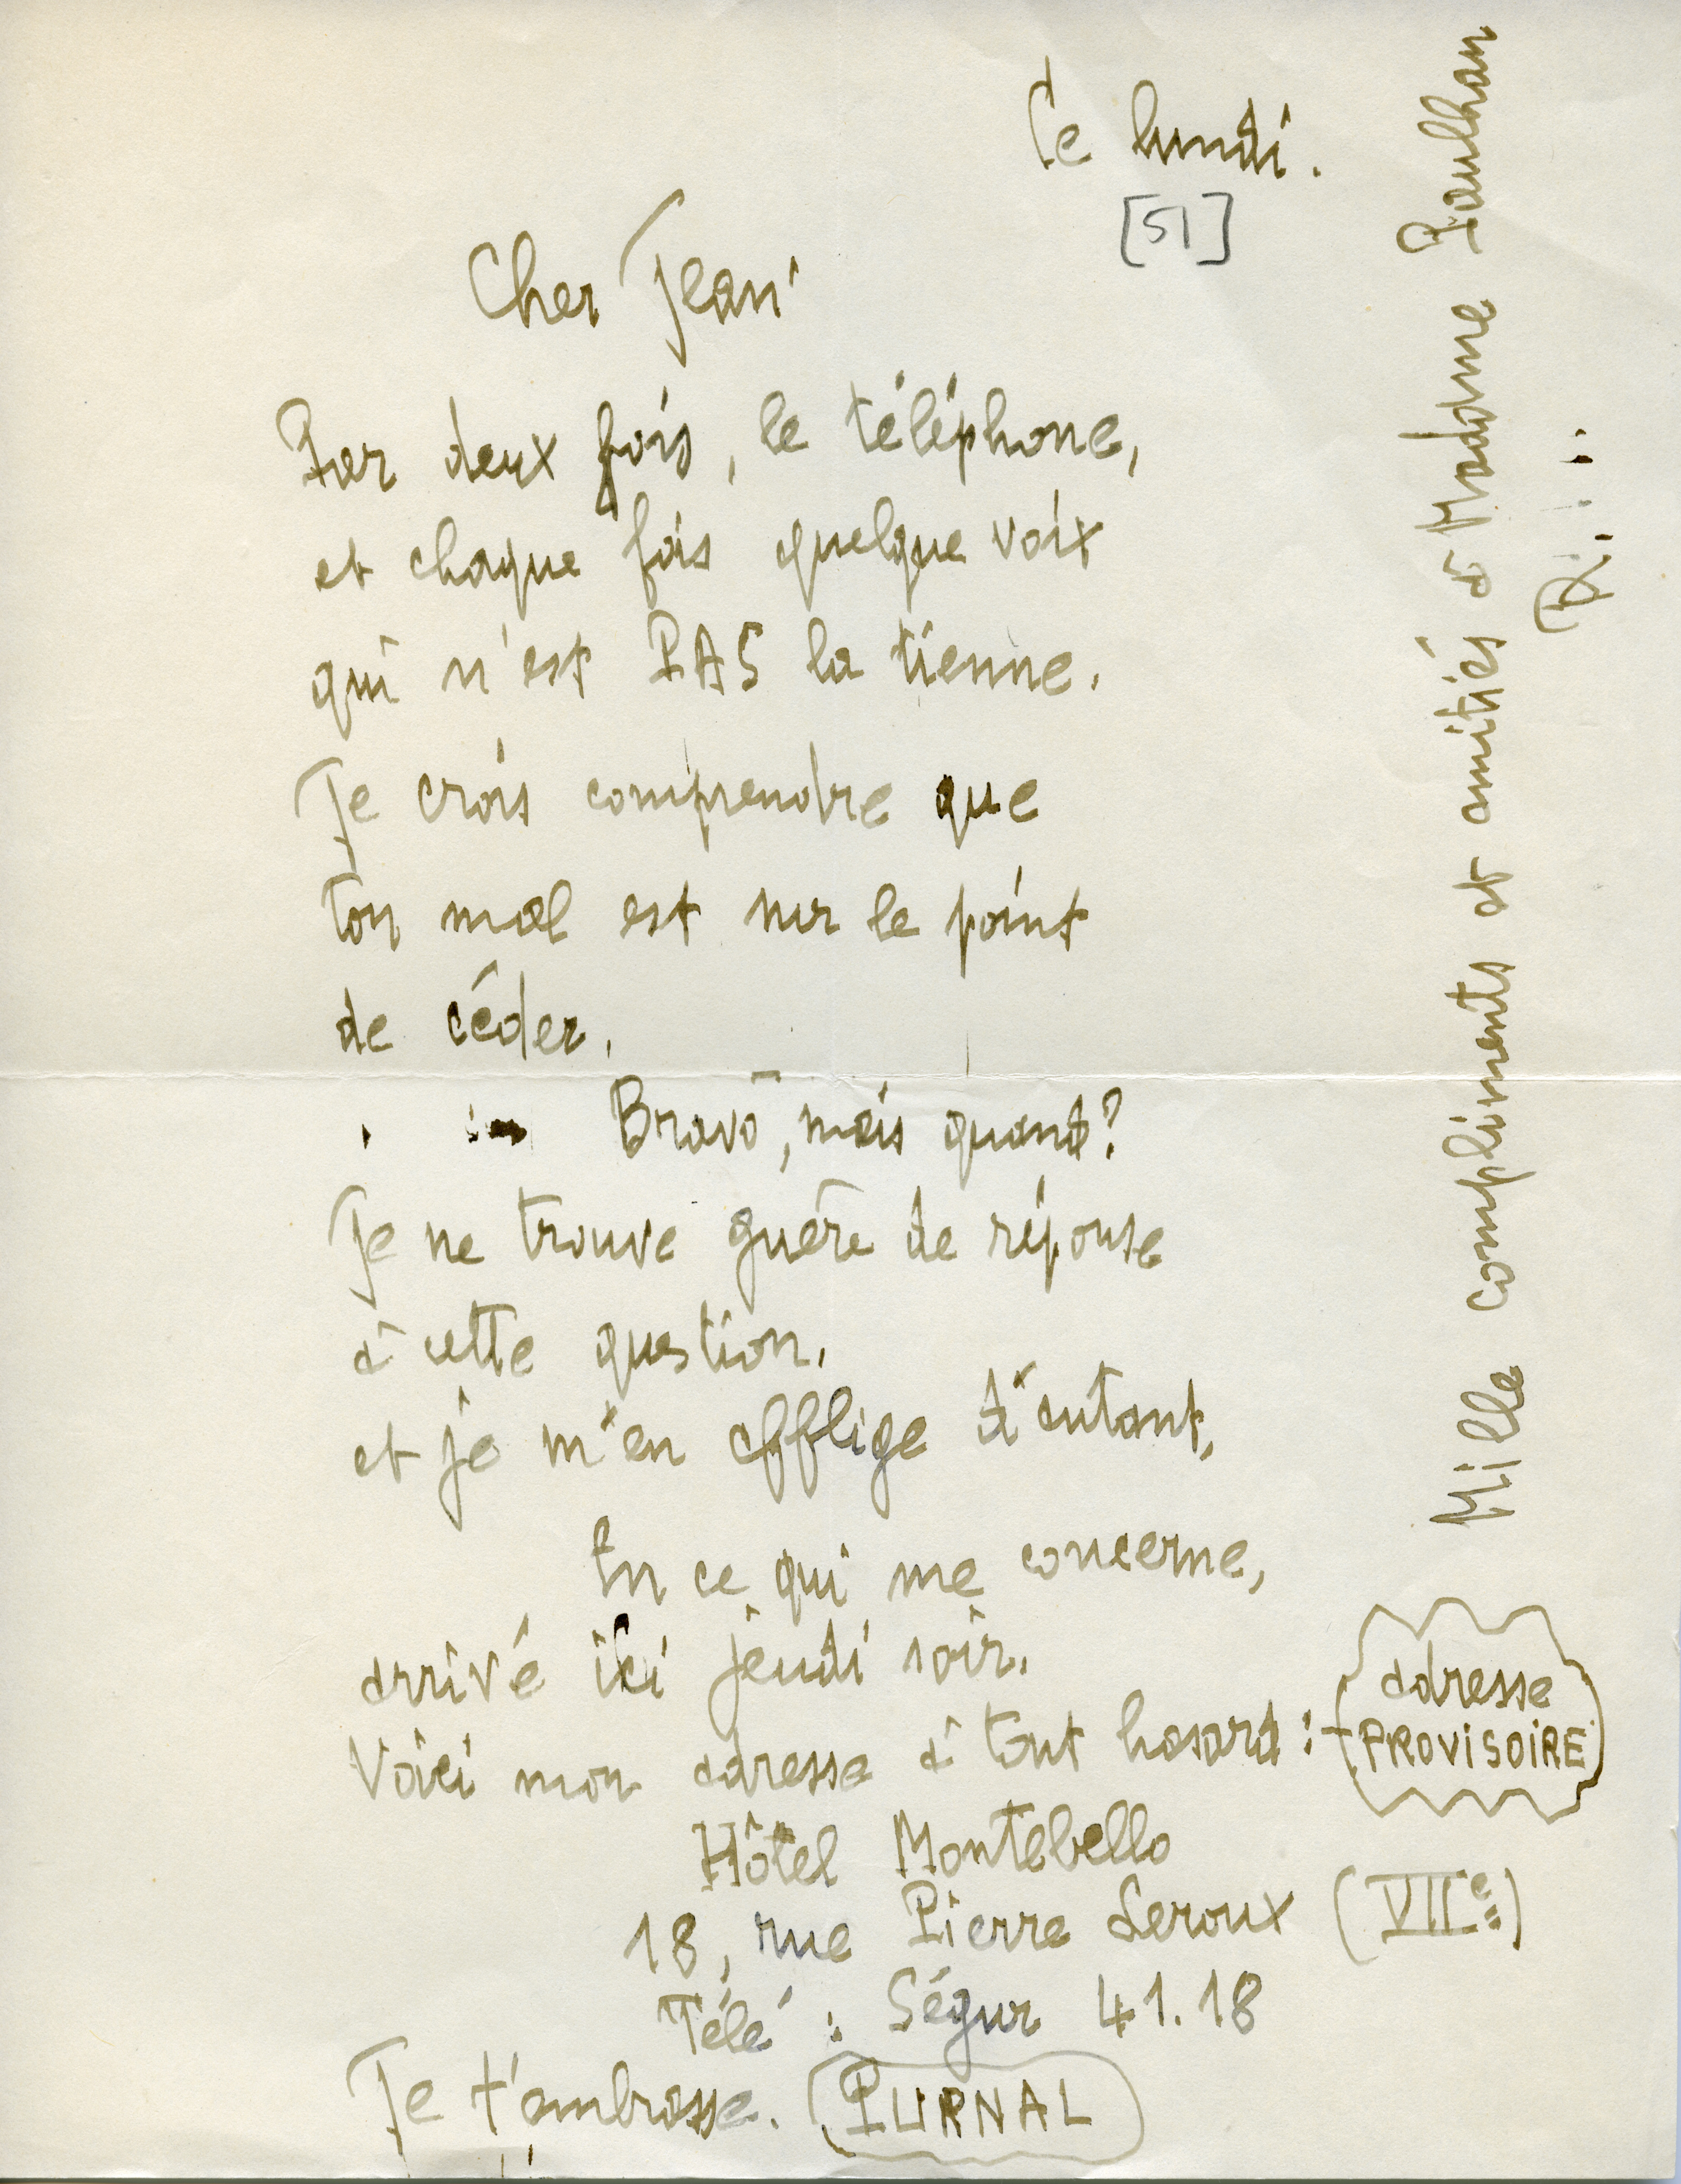 Ce lundi.
[51]
Cher Jean
Par deux fois, le téléphone,
et chaque fois quelque voix
qui n'est PAS la tienne.
Je crois comprendre que
ton mal est sur le point
de céder.
Bravo, mais quand?
Je ne trouve guère de réponse
à cette question.
et je m'en afflige d'autant.
En ce qui me concerne,
arrivé ici jeudi soir.
Voici mon adresse à tout hasard :
adresse
PROVISOIRE
Hôtel Montebello
18, rue Pierre Leroux (VIIe)
Télé : Ségur 41.18
Je t'embrasse. PURNAL
Mille compliments et amitiés à Madame Paulhan